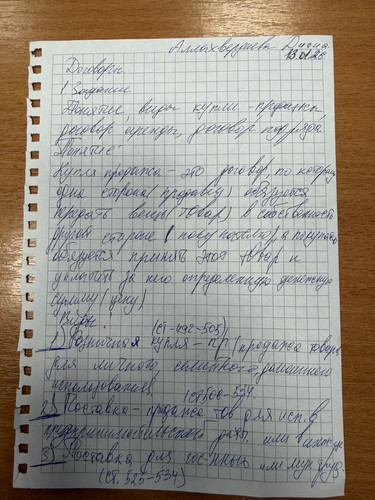 Аллахвердиева Диана
13.01.26
Договоры
1 Задание
Понятие, виды купли-продажи,
договор аренды, договор подряда
Понятие:
Купля продажа - это договор, по которому
одна сторона (продавец) обязуется
передать вещь (товар) в собственность
другой стороне (покупателю), а покупатель
обязуется принять этот товар и
уплатить за него определенную денежную
сумму (цену)
Виды:
(ст-492-505)
1) Розничная купля-п/п (продажа товара
для личного, семейного, домашнего
использования,
ст506-534.
2) Поставка-продажа тов для исп. в
предпринимательской или
3) Поставка для или
(ст. 525-534)